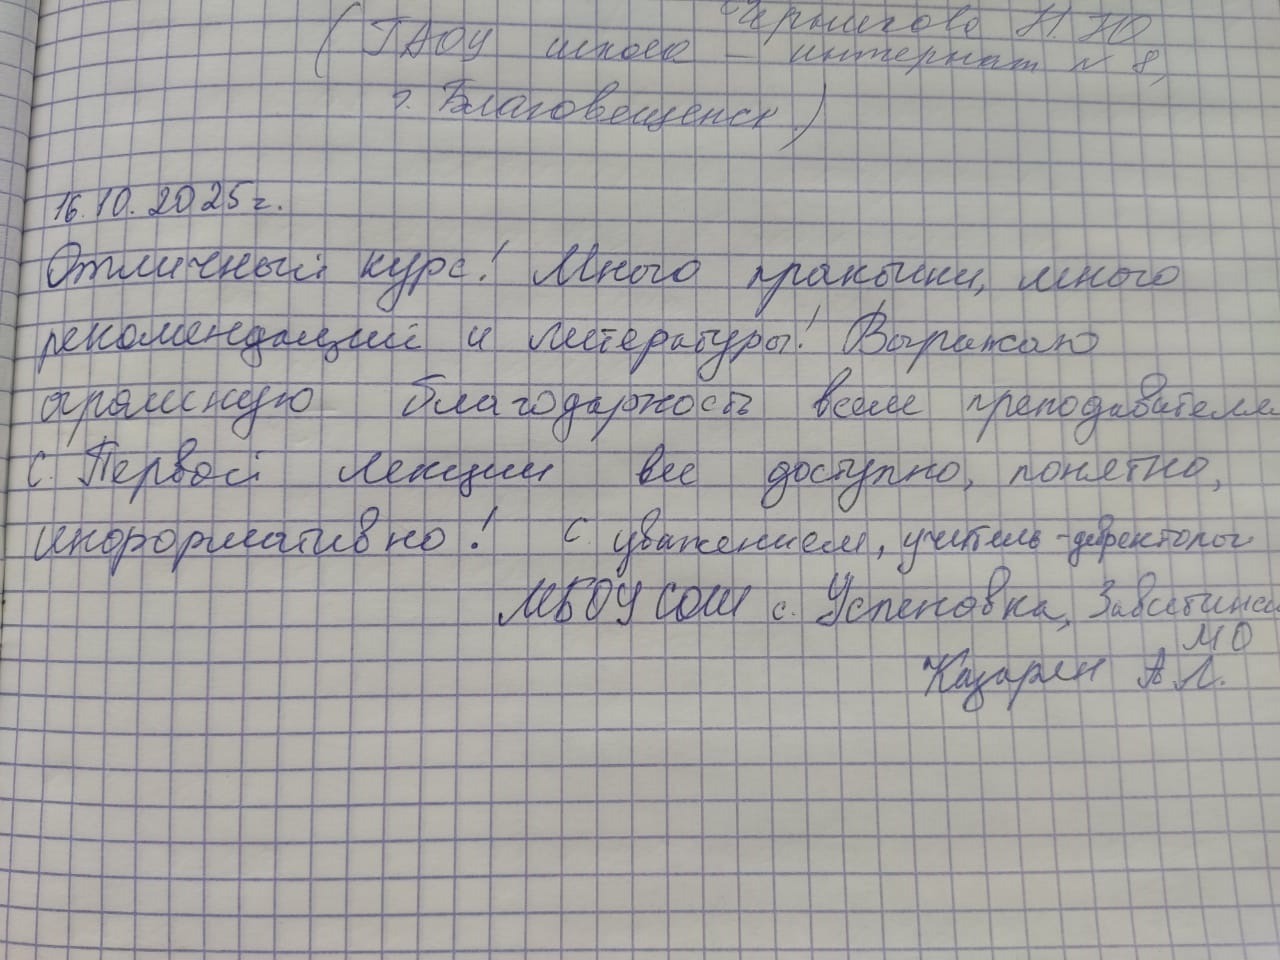 Чернигова Н.Ю
(ГАОУ школа - интернат № 8,
г. Благовещенск)
16.10.2025г.
Отличный курс! Много практики, много
рекомендаций и литературы! Выражаю
огромную благодарность всем преподавателям
С первой лекции все доступно, понятно,
информативно! С уважением, учитель-дефектолог
МБОУ СОШ с. Успеновка,
МО
Казарен А Л.